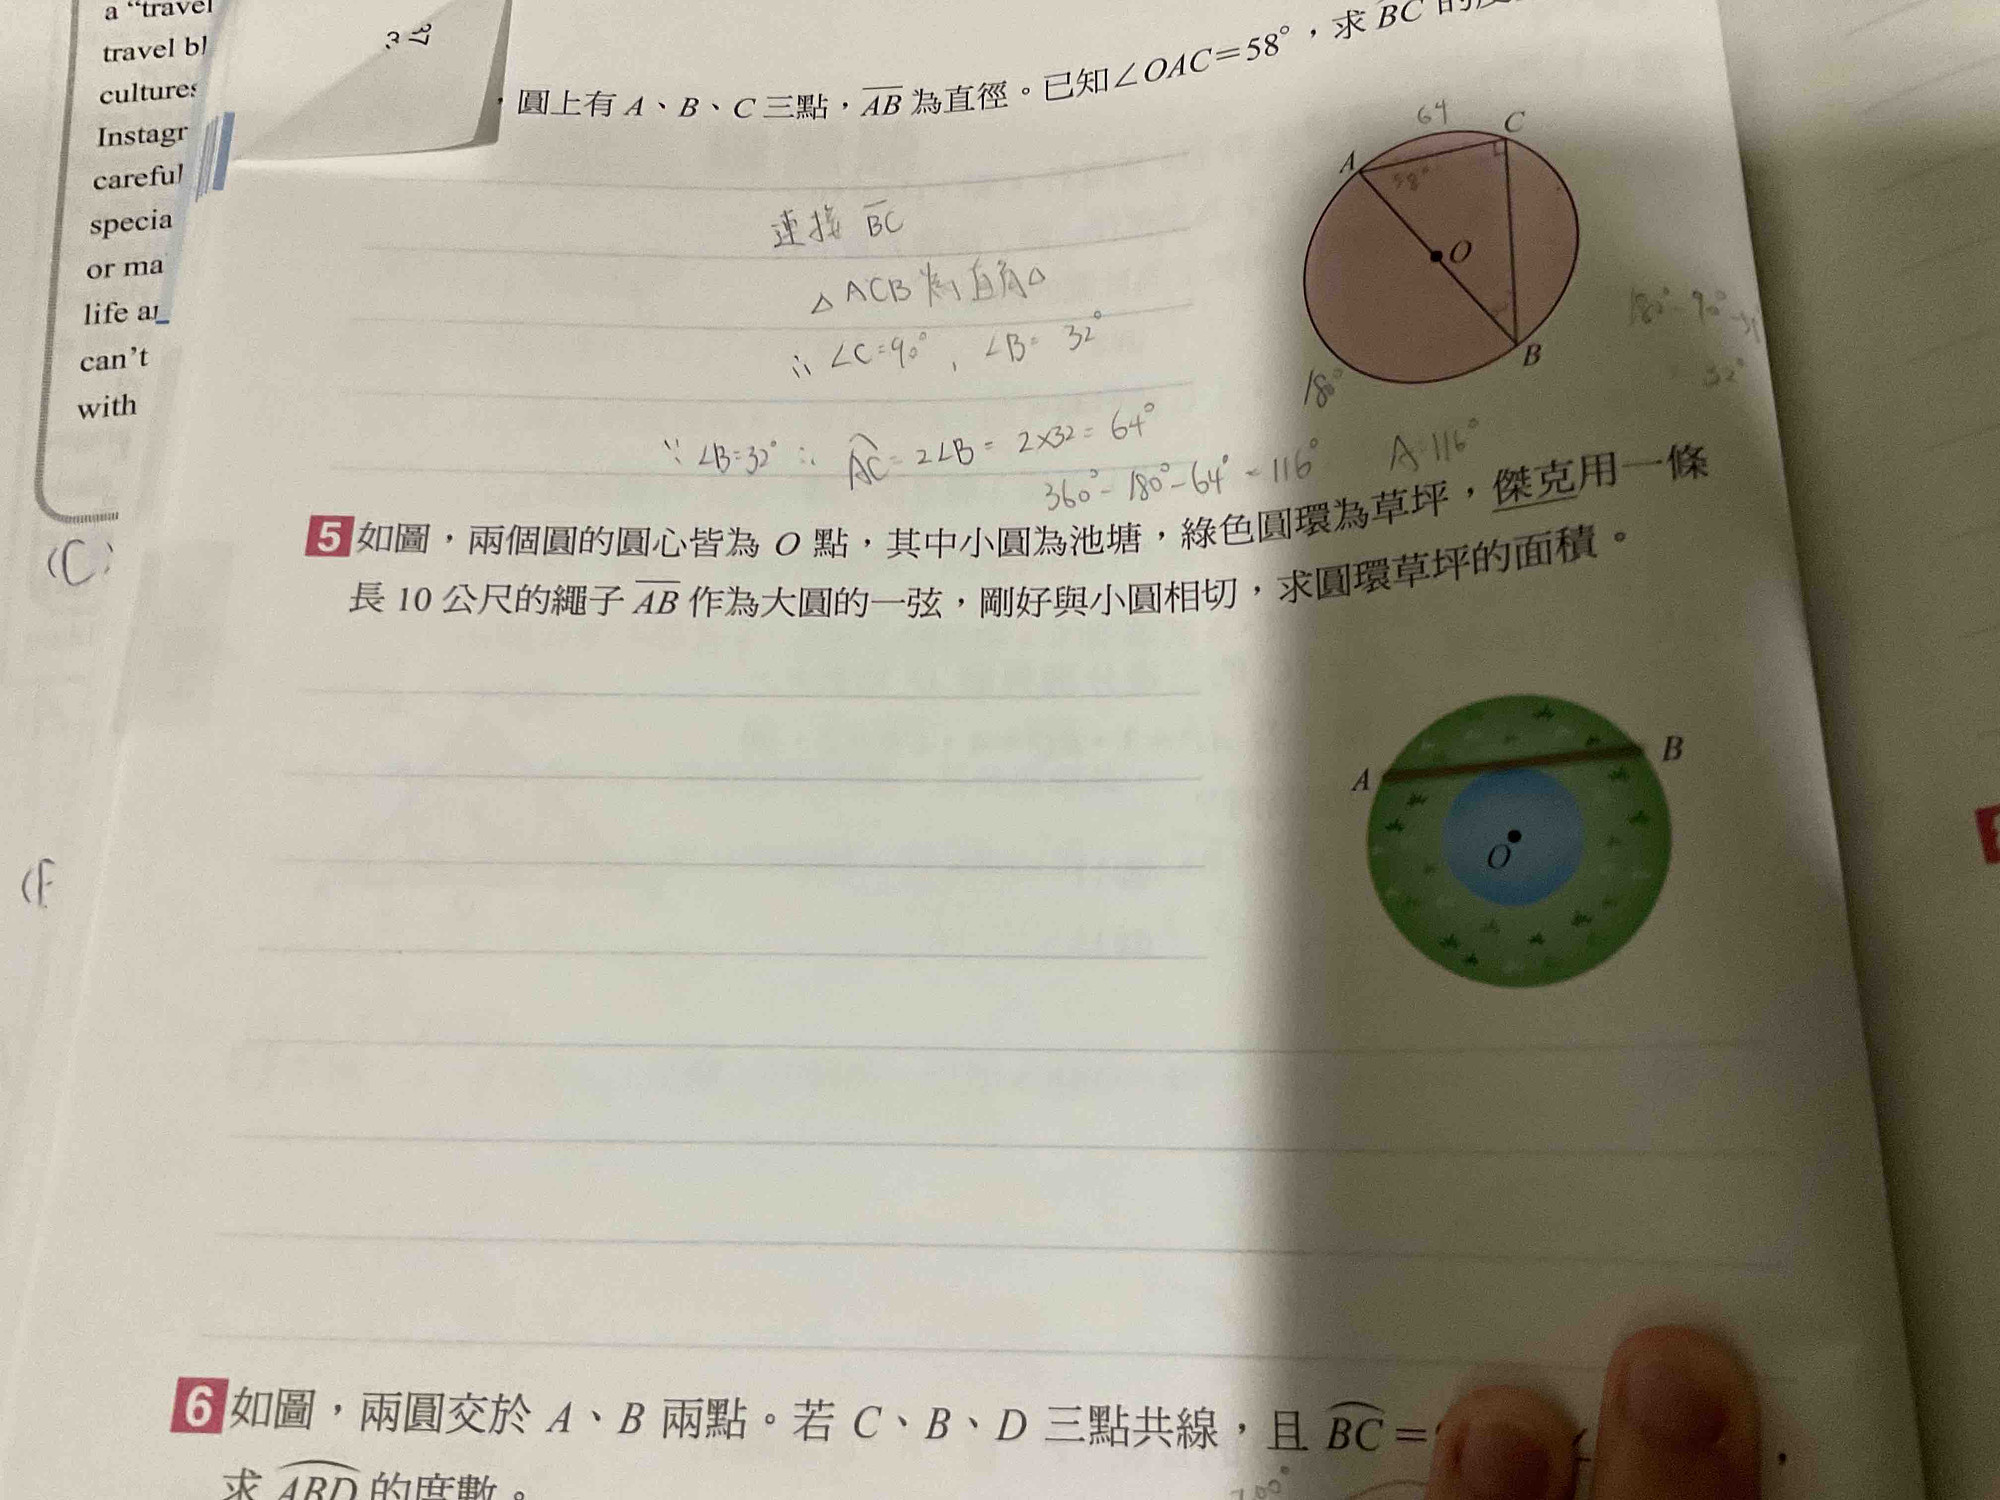 a “travel
travel bl
cultures
Instagr
careful
specia
or ma
life ar
can’t
with
(C)
圓上有 A、B、C 三點，AB 為直徑。已知∠OAC=58°，求 BC 的
64
A
C
58°
O
B
連接 BC
△ACB為直角△
∴ ∠C=90°, ∠B=32°
180°-90°
32°
180°
∵ ∠B=32° ∴ AC=2∠B=2×32=64°
360°-180°-64°=116°
A:116°
5 如圖，兩個圓的圓心皆為 O 點，其中小圓為池塘，綠色圓環為草坪，傑克用一條
長 10 公尺的繩子 AB 作為大圓的一弦，剛好與小圓相切，求圓環草坪的面積。
A
B
O
6 如圖，兩圓交於 A、B 兩點。若 C、B、D 三點共線，且 BC=
求 ABD 的度數。